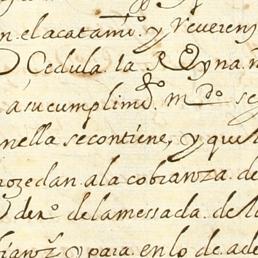 n. el acatam.to y Reveren
Cedula. la Reyna. n
a su cumplim.to m.do se
nella se contiene, y que
rozedan. a la cobranza. de
der.os de la mesada. de l
ianz.a y para. en lo de ade